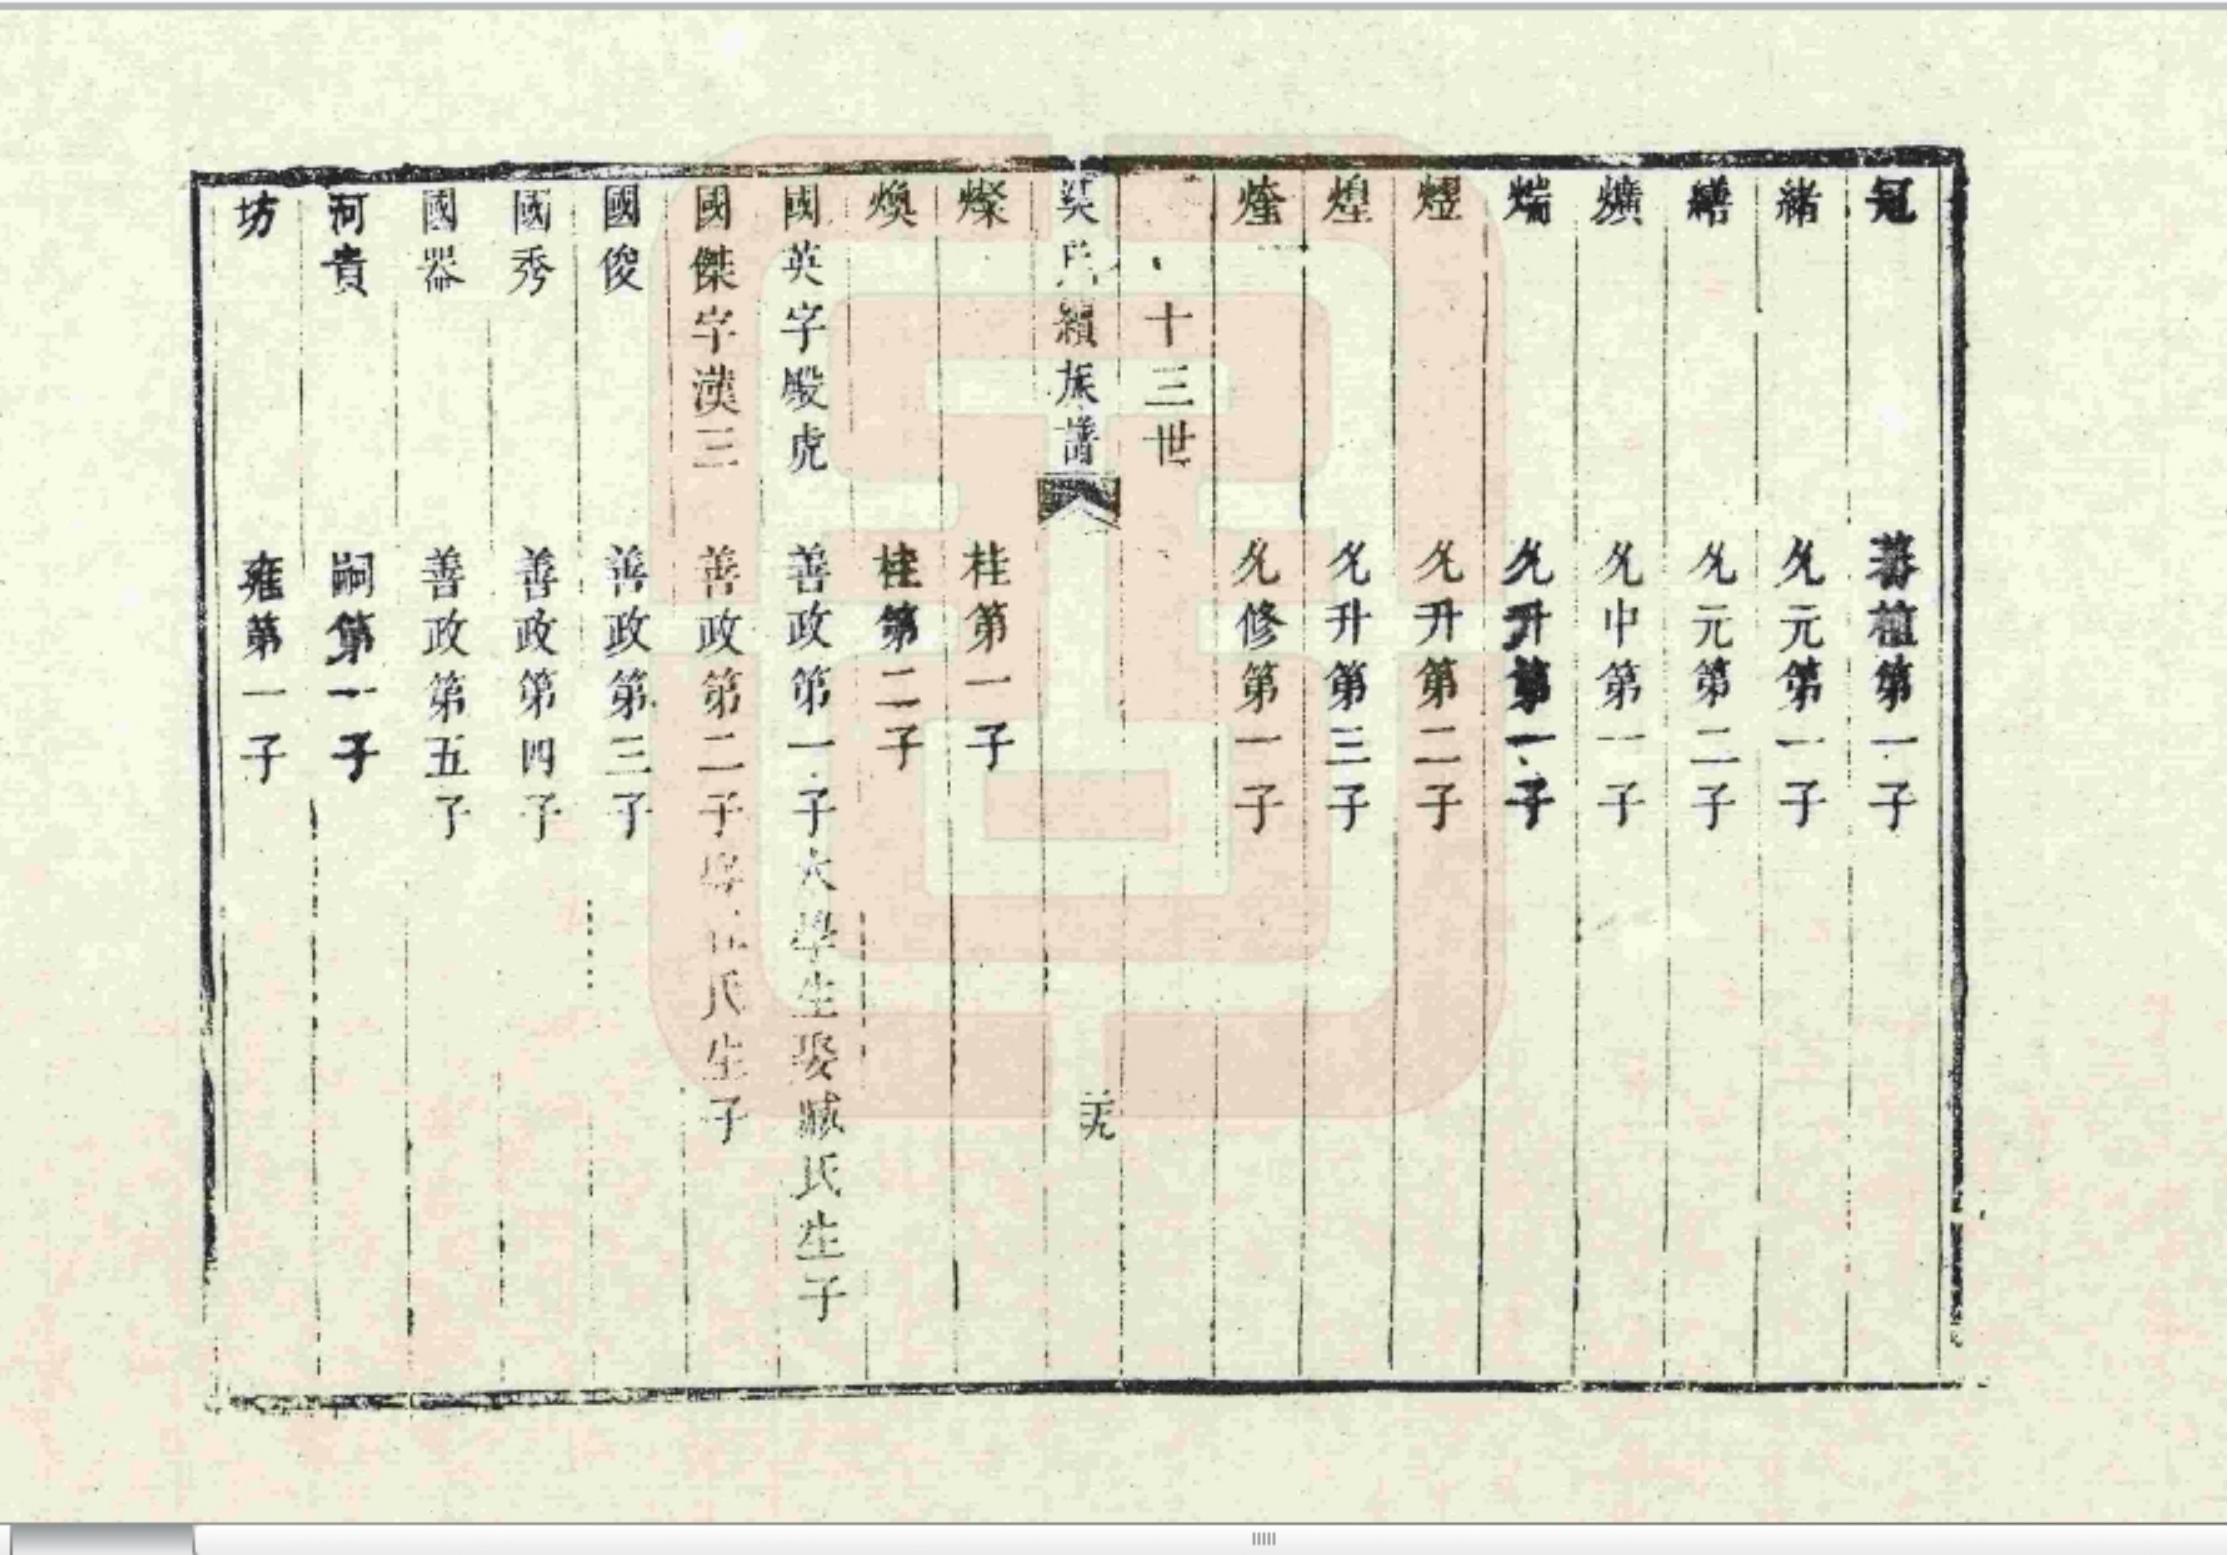 冠 善植第一子
緒 允元第一子
繕 允元第二子
爌 允中第一子
煓 允升第一子
熤 允升第二子
煌 允升第三子
允修第一子
十三世
吳氏續族譜
燦 桂第一子
煥 桂第二子
國英字殿虎 善政第一子大學生娶臧氏生子
國傑字漢三 善政第二子 氏生子
國俊 善政第三子
國秀 善政第四子
國器 善政第五子
河貴 嗣第一子
坊 雍第一子